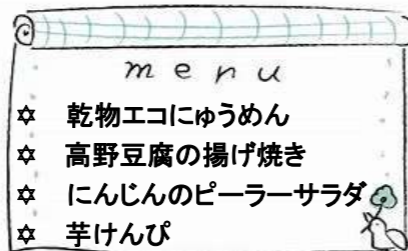 menu
✡ 乾物エコにゅうめん
✡ 高野豆腐の揚げ焼き
✡ にんじんのピーラーサラダ
✡ 芋けんぴ